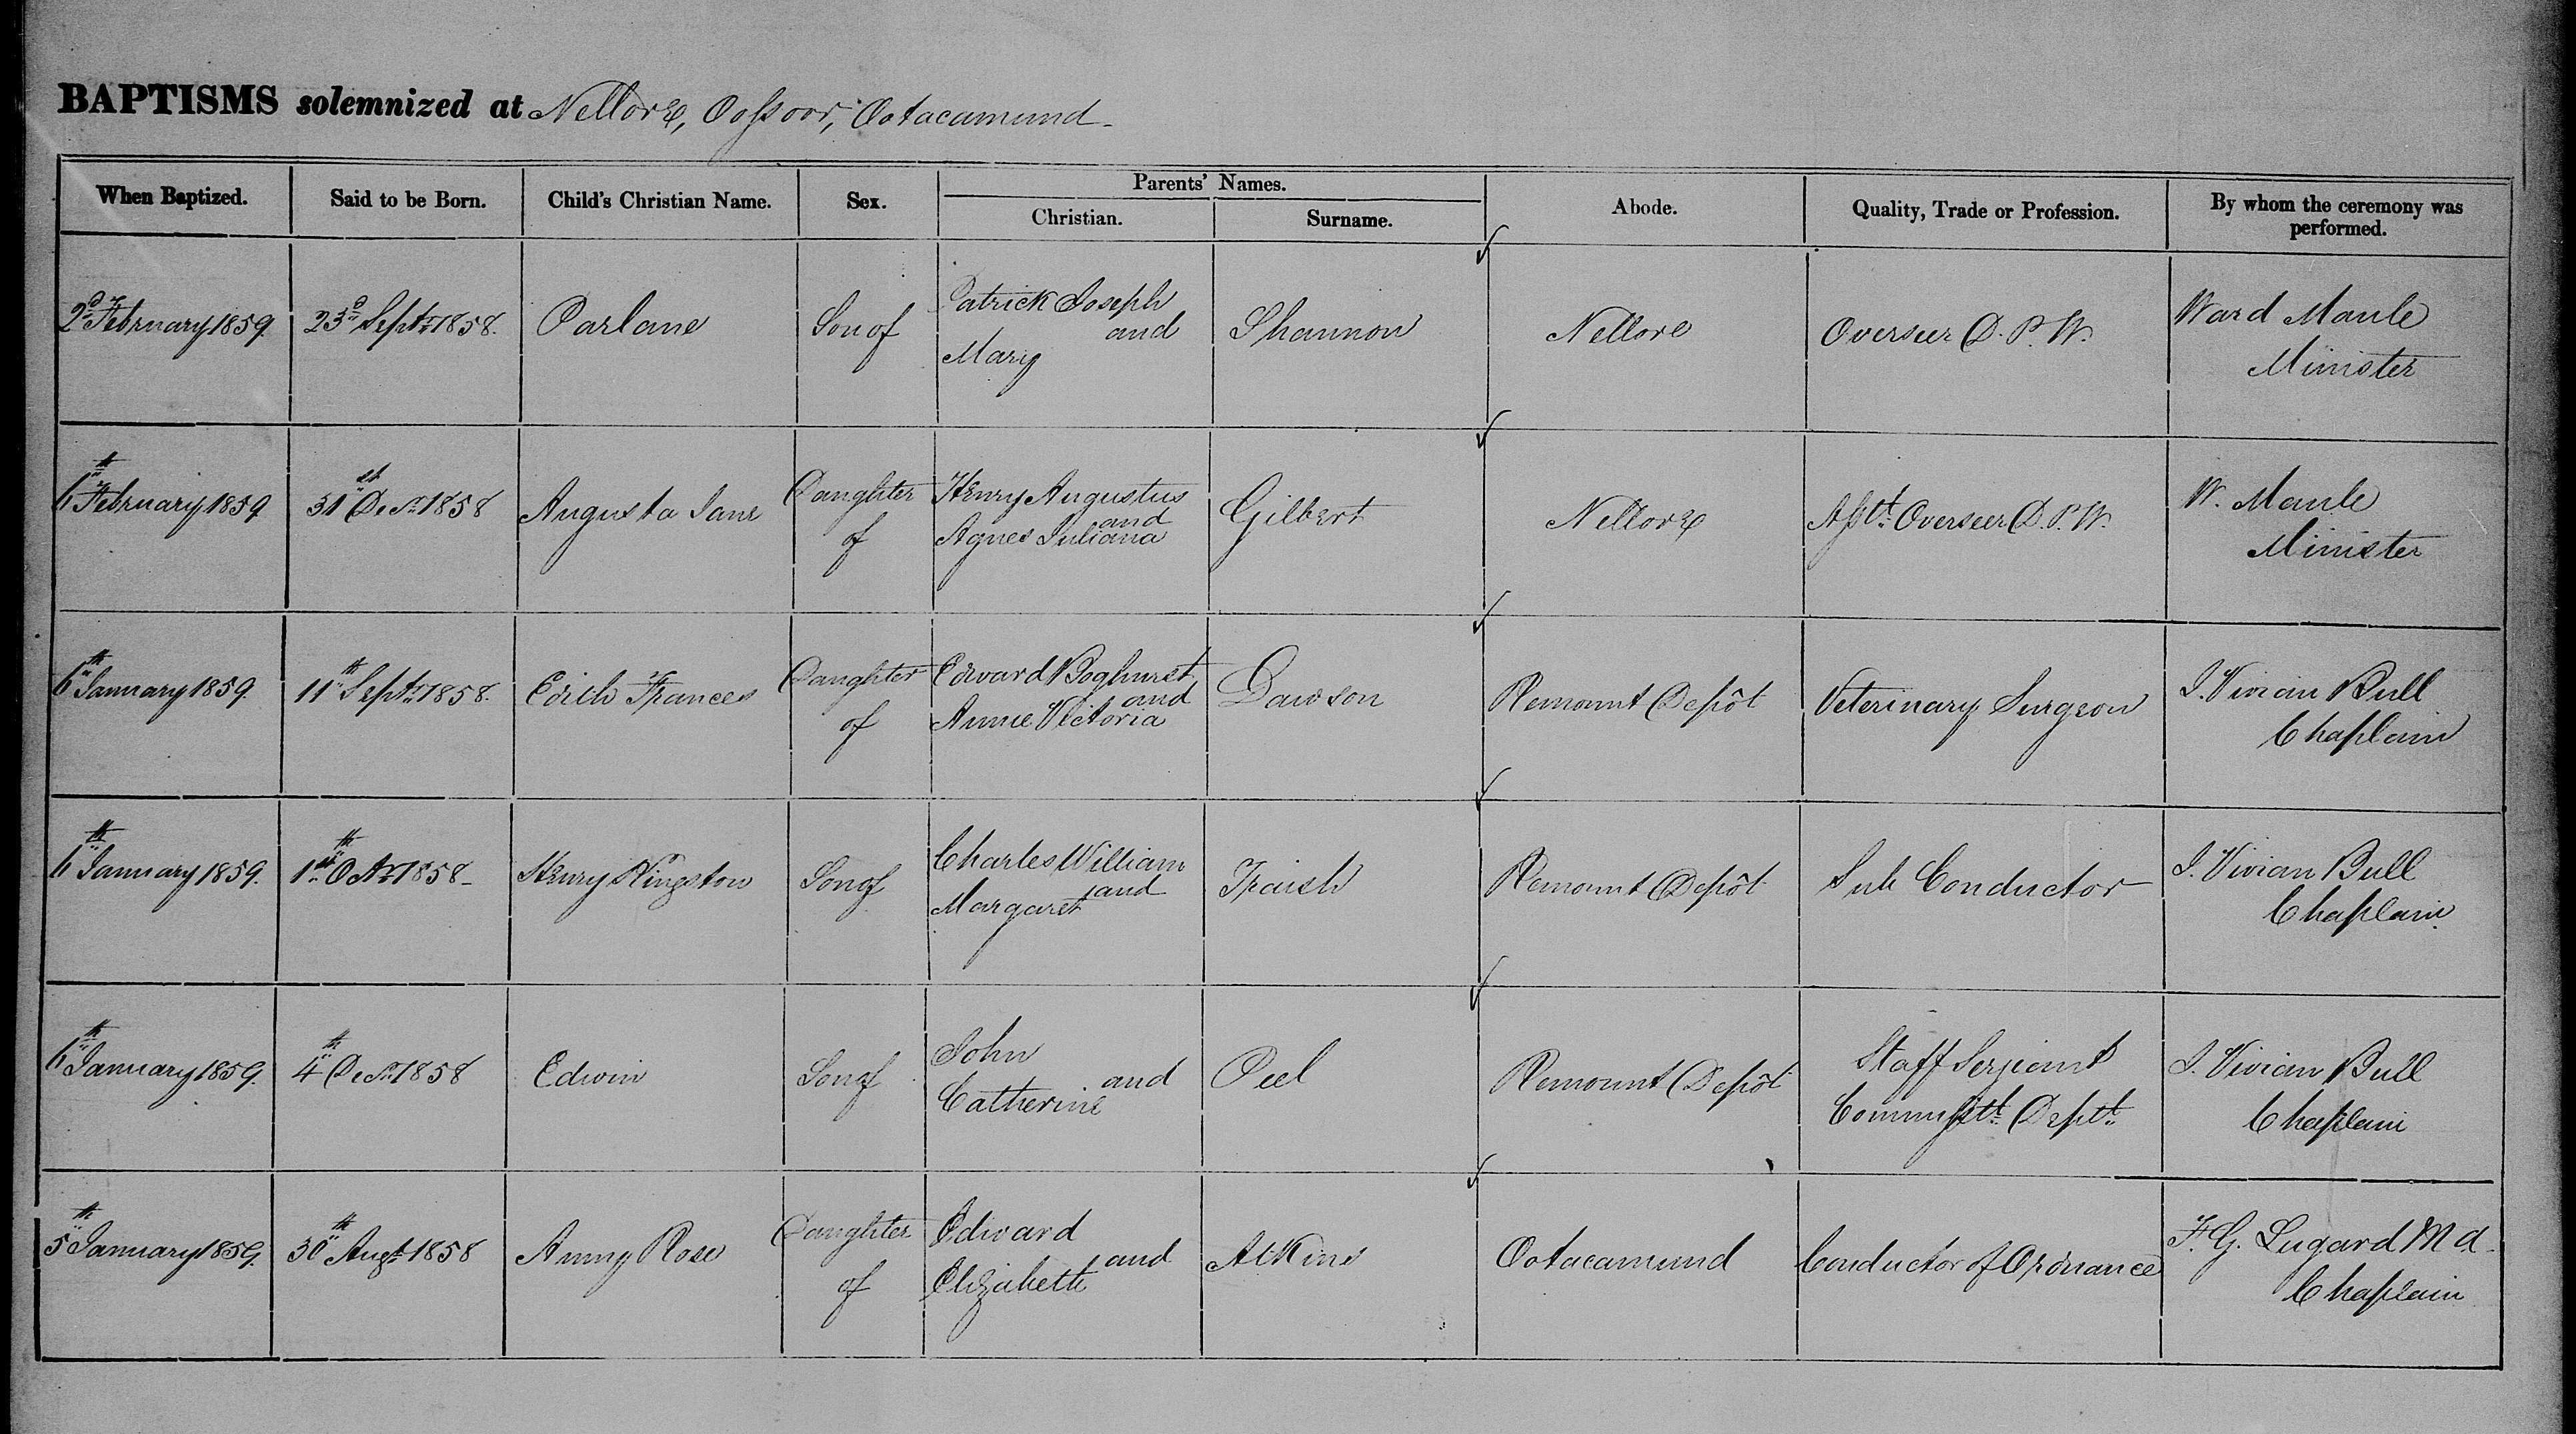 BAPTISMS solemnized at Nellore, Oossoor, Ootacamund
When Baptized. Said to be Born. Child's Christian Name. Sex. Parents' Names. Abode. Quality, Trade or Profession. By whom the ceremony was performed.
Christian. Surname.
2d February 1859. 23d Septr 1858. Parlane Son of Patrick Joseph and Mary Shannon Nellore Overseer D. P. W. Ward Maule Minister
6th February 1859 31st Decr 1858 Augusta Jane Daughter of Henry Augustus and Agnes Juliana Gilbert Nellore Asst. Overseer D. P. W. W. Maule Minister
6th January 1859. 11th Septr 1858. Edith Frances Daughter of Edward Boghurst and Annie Victoria Dawson Remount Depôt Veterinary Surgeon J. Vivian Bull Chaplain
6th January 1859. Octr 1858 Henry Kingston Son of Charles William and Margaret Traish Remount Depôt Sub Conductor J. Vivian Bull Chaplain.
6th January 1859. 4th Decr 1858 Edwin Son of John and Catherine Peel Remount Depôt Staff Serjeant Commisstt. Deptt. J. Vivian Bull Chaplain
5th January 1859. 30th Augt 1858 Anny Rose Daughter of Edward and Elizabeth Atkins Ootacamund Conductor of Ordnance F. G. Lugard M a Chaplain